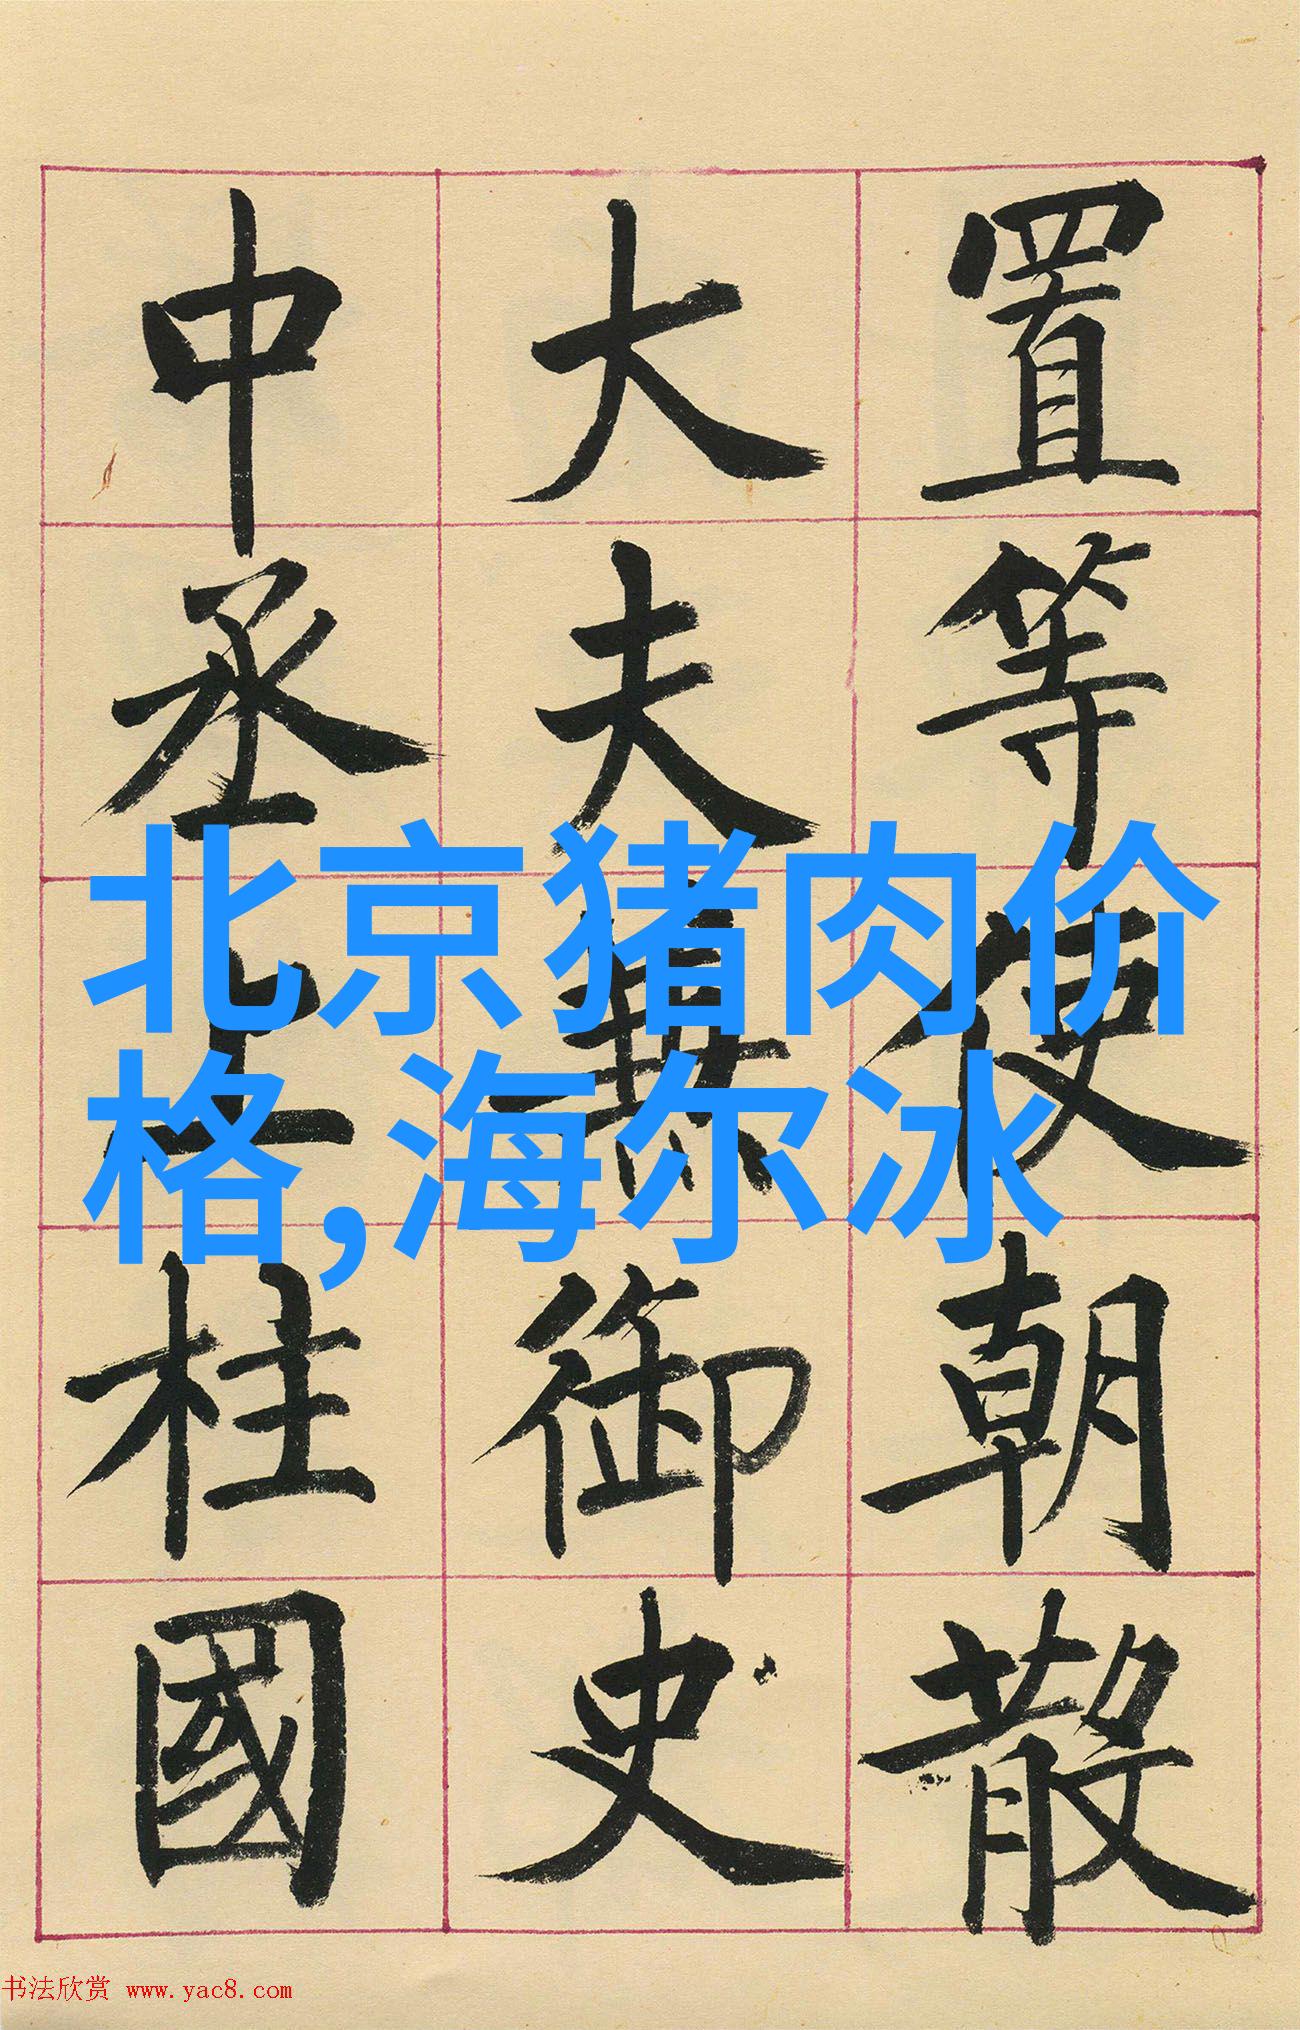 置等使朝散
大夫兼御史
中丞上柱國
北京猪肉价
格,海尔冰
书法欣赏 www.yac8.com